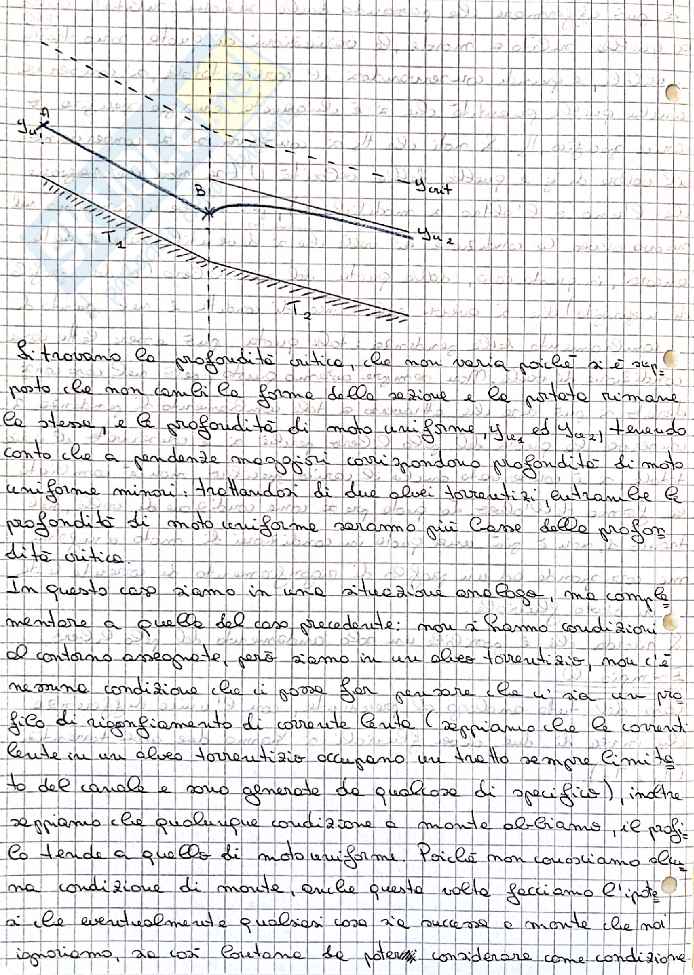 A
yu1
B
ycrit
yu2
T1
T2
Si trovano la profondità critica, che non varia poiché si è sup=
posto che non cambi la forma della sezione e la portata rimane
la stessa, e le profondità di moto uniforme, yu1 ed yu2, tenendo
conto che a pendenze maggiori corrispondono profondità di moto
uniforme minori: trattandosi di due alvei torrentizi, entrambe le
profondità di moto uniforme saranno più basse della profon=
dità critica.
In questo caso siamo in una situazione analoga, ma comple=
mentare a quella del caso precedente: non si hanno condizioni
al contorno assegnate, però siamo in un alveo torrentizio, non c'è
nessuna condizione che ci possa far pensare che ci sia un pro=
filo di rigonfiamento di corrente lenta (sappiamo che le correnti
lente in un alveo torrentizio occupano un tratto sempre limita=
to del canale e sono generate da qualcosa di specifico), inoltre
sappiamo che qualunque condizione a monte abbiamo, il profi=
lo tende a quello di moto uniforme. Poiché non conosciamo alcu=
na condizione di monte, anche questa volta facciamo l'ipote=
si che eventualmente qualsiasi cosa sia successa a monte che noi
ignoriamo, sia così lontana da poter considerare come condizione